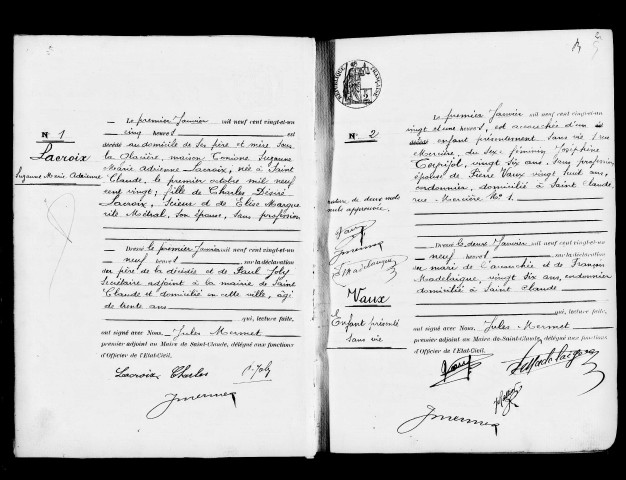 N° 1
Lacroix
Suzanne Marie Adrienne
— Le premier Janvier mil neuf cent vingt-et-un
— cinq heures — est
décédée au domicile de ses père et mère sous
la maison Comoine Suzanne
Marie Adrienne Lacroix, née à Saint
Claude, le premier octobre mil neuf
cent vingt, fille de Charles Désiré
Lacroix, Scieur et de Elise Margue
rite Métral, son épouse, sans profession
— Dressé le premier Janvier mil neuf cent vingt-et-un
— neuf heures — sur la déclaration
du père de la décédée et de Paul Joly
Secrétaire adjoint à la mairie de Saint
Claude et domicilié en cette ville, âgé
de trente ans
qui, lecture faite,
ont signé avec Nous, Jules Mermet
premier adjoint au Maire de Saint-Claude, délégué aux fonctions
d'Officier de l'Etat-Civil.
Lacroix Charles P. Joly
JMermet
2
RÉPUBLIQUE FRANÇAISE
N° 2
Vaux
Enfant présenté
sans vie
Le premier Janvier mil neuf cent vingt-et-un
vingt et une heures, est accouchée d'un
enfant présentement sans vie, rue
Mercière, du sexe féminin, Joséphine
vingt six ans, sans profession
épouse de Pierre Vaux vingt huit ans,
cordonnier, domicilié à Saint Claude
rue Mercière No 1.
de deux mots
approuvée.
Vaux
JMermet
— Dressé le deux Janvier mil neuf cent vingt-et-un
neuf heures — sur la déclaration
du mari de l'accouchée et de François
Madelaigue, vingt six ans, cordonnier
domicilié à Saint Claude
qui, lecture faite,
ont signé avec Nous, Jules Mermet
premier adjoint au Maire de Saint-Claude, délégué aux fonctions
d'Officier de l'Etat-Civil.
Vaux
JMermet